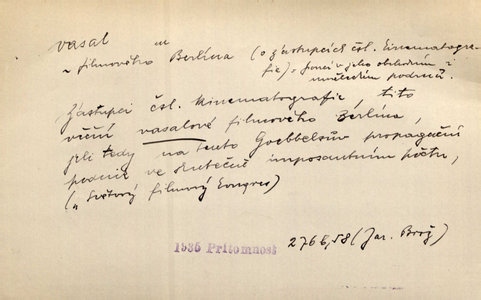 vasal
~ filmového Berlína (o zástupcích čsl. kinematogra-
fie) = jsoucí v jeho obchodním i
uměleckém podruží.
Zástupci čsl. kinematografie, tito
věční vasalové filmového Berlína,
jeli tedy na tento Goebbelsův propagační
podnik ve skutečně imposantním počtu,
("Světový filmový kongres)
1935 Přítomnost 276 b, 58 (Jar. Brož)